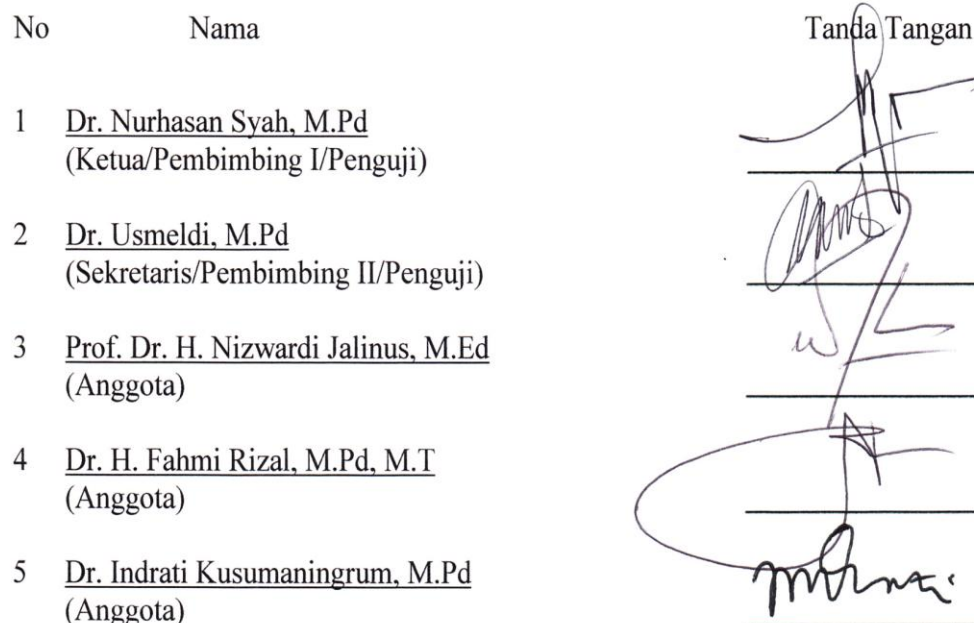 No Nama Tanda Tangan
1 Dr. Nurhasan Syah, M.Pd
(Ketua/Pembimbing I/Penguji)
2 Dr. Usmeldi, M.Pd
(Sekretaris/Pembimbing II/Penguji)
3 Prof. Dr. H. Nizwardi Jalinus, M.Ed
(Anggota)
4 Dr. H. Fahmi Rizal, M.Pd, M.T
(Anggota)
5 Dr. Indrati Kusumaningrum, M.Pd
(Anggota)